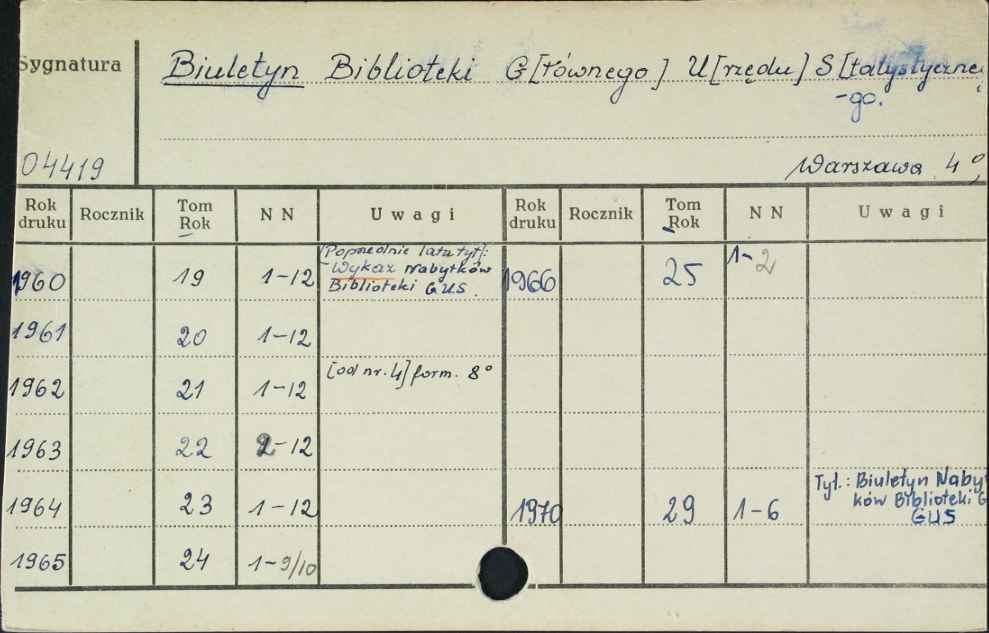 Sygnatura
Biuletyn Biblioteki G[łównego] U[rzędu] S[tatystyczne
-go.
04419
Warszawa 4°
Rok druku Rocznik Tom Rok N N Uwagi Rok druku Rocznik Tom Rok N N Uwagi
[Poprzednie lata tyt]:
Wykaz Nabytków
Biblioteki GUS.
1960 19 1-12 1966 25 1-2
1961 20 1-12
1962 21 1-12 [od nr. 4] form. 8°
1963 22 2-12
Tyt.: Biuletyn Naby
ków Biblioteki G
GUS
1964 23 1-12 1970 29 1-6
1965 24 1-9/10